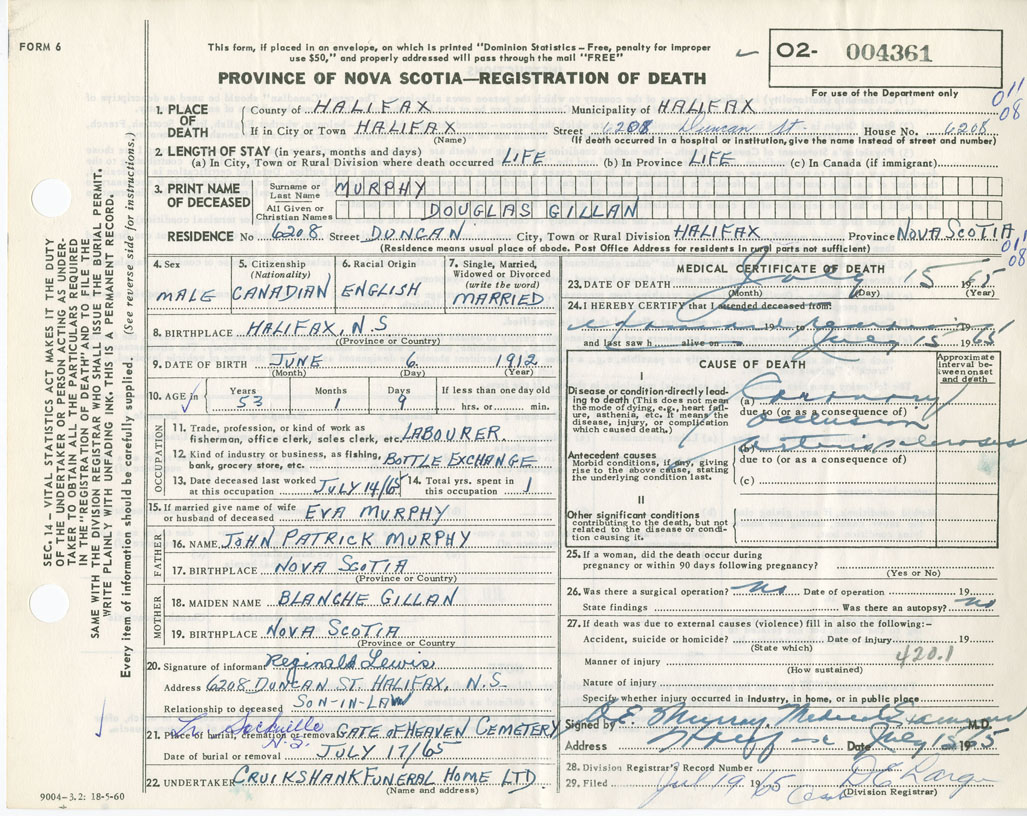 FORM 6
This form, if placed in an envelope, on which is printed "Dominion Statistics – Free, penalty for improper
use $50," and properly addressed will pass through the mail "FREE"
O2- 004361
For use of the Department only
PROVINCE OF NOVA SCOTIA—REGISTRATION OF DEATH
011
08
1. PLACE OF DEATH
County of HALIFAX Municipality of HALIFAX
If in City or Town HALIFAX Street 6208 Duncan St. House No. 6208
(Name) (If death occurred in a hospital or institution, give the name instead of street and number)
2. LENGTH OF STAY (in years, months and days)
(a) In City, Town or Rural Division where death occurred LIFE (b) In Province LIFE (c) In Canada (if immigrant)
3. PRINT NAME OF DECEASED
Surname or Last Name MURPHY
All Given or Christian Names DOUGLAS GILLAN
RESIDENCE No 6208 Street DUNCAN City, Town or Rural Division HALIFAX Province NOVA SCOTIA
(Residence means usual place of abode. Post Office Address for residents in rural parts not sufficient)
011
08
4. Sex MALE
5. Citizenship (Nationality) CANADIAN
6. Racial Origin ENGLISH
7. Single, Married, Widowed or Divorced (write the word) MARRIED
8. BIRTHPLACE HALIFAX, N.S
(Province or Country)
9. DATE OF BIRTH JUNE 6 1912
(Month) (Day) (Year)
10. AGE in Years 53 Months 1 Days 9 If less than one day old hrs. or min.
OCCUPATION
11. Trade, profession, or kind of work as
fisherman, office clerk, sales clerk, etc. LABOURER
12. Kind of industry or business, as fishing,
bank, grocery store, etc. BOTTLE EXCHANGE
13. Date deceased last worked at this occupation JULY 14/65 14. Total yrs. spent in this occupation 1
15. If married give name of wife
or husband of deceased EVA MURPHY
FATHER
16. NAME JOHN PATRICK MURPHY
17. BIRTHPLACE NOVA SCOTIA
(Province or Country)
MOTHER
18. MAIDEN NAME BLANCHE GILLAN
19. BIRTHPLACE NOVA SCOTIA
(Province or Country)
20. Signature of informant Reginald Lewis
Address 6208 DUNCAN ST. HALIFAX, N.S.
Relationship to deceased SON-IN-LAW
Lr. Sackville
N.S.
21. Place of burial, cremation or removal GATE OF HEAVEN CEMETERY
Date of burial or removal JULY 17/65
22. UNDERTAKER CRUIKSHANK FUNERAL HOME LTD.
(Name and address)
MEDICAL CERTIFICATE OF DEATH
23. DATE OF DEATH July 15 1965
(Month) (Day) (Year)
24. I HEREBY CERTIFY that I attended deceased from:
19 to 19
and last saw h alive on July 15 1965
CAUSE OF DEATH
Approximate interval between onset and death
I
Disease or condition directly leading to death (This does not mean the mode of dying, e.g., heart failure, asthenia, etc. It means the disease, injury, or complication which caused death.)
(a) Coronary
due to (or as a consequence of)
occlusion
Antecedent causes
Morbid conditions, if any, giving rise to the above cause, stating the underlying condition last.
(b) Arteriosclerosis
due to (or as a consequence of)
(c)
II
Other significant conditions
contributing to the death, but not related to the disease or condition causing it.
25. If a woman, did the death occur during
pregnancy or within 90 days following pregnancy?
(Yes or No)
26. Was there a surgical operation? no Date of operation 19
State findings Was there an autopsy? no
27. If death was due to external causes (violence) fill in also the following:-
Accident, suicide or homicide? Date of injury 19
(State which)
420.1
Manner of injury
(How sustained)
Nature of injury
Specify whether injury occurred in industry, in home, or in public place
Signed by Murray, Medical Examiner M.D.
Address Halifax Date July 15 1965
28. Division Registrar's Record Number
29. Filed Jul 19 1965
(Division Registrar)
SEC. 14 – VITAL STATISTICS ACT MAKES IT THE DUTY
OF THE UNDERTAKER OR PERSON ACTING AS UNDER-
TAKER TO OBTAIN ALL THE PARTICULARS REQUIRED
IN THE "REGISTRATION OF DEATH" AND TO FILE THE
SAME WITH THE DIVISION REGISTRAR WHO SHALL ISSUE THE BURIAL PERMIT.
WRITE PLAINLY WITH UNFADING INK. THIS IS A PERMANENT RECORD.
Every item of information should be carefully supplied. (See reverse side for instructions.)
9004-3.2: 18-5-60